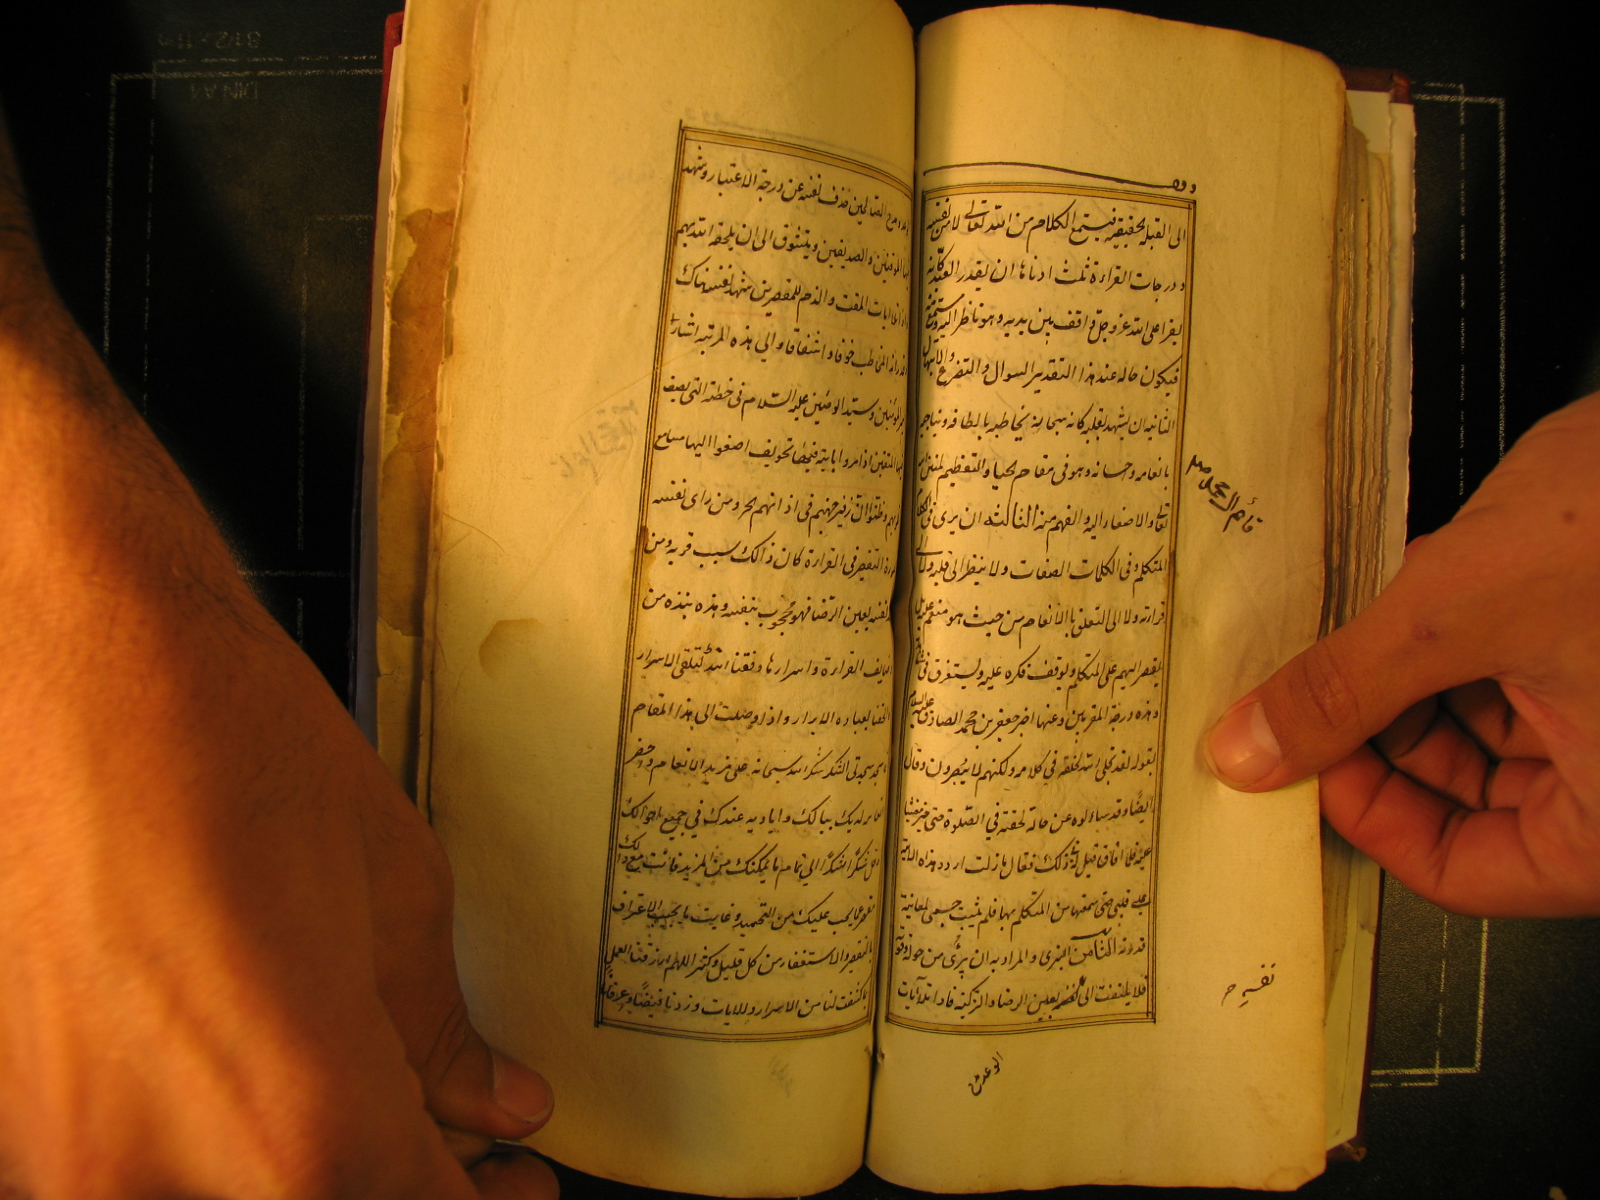 وقف
الى القبله لحقيقيه فيستمع الكلام من الله تعالى لا من نفسه
ودرجات القراءة ثلث ادناها ان يقدر العبد كانه
يقرا على الله عز وجل واقف بين يديه وهو ناظر اليه ومستمع منه
فيكون حاله عند هذا التقدير السوال والتضرع والابتهال
الثانيه ان يشهد بقلبه كانه سبحانه يخاطبه بالطافه ويناجيه
بانعامه واحسانه وهو في مقام الحيا والتعظيم لمنن الله
تعالى والاصغاء اليه والفهم منه الثالثه ان يرى في الكلام
المتكلم وفي الكلمات الصفات ولا ينظر الى قلبه ولا الى
قراءته ولا الى التعلق بالانعام من حيث هو منعم عليه بل
يقصر الهم على المتكلم ويوقف فكره عليه ويستغرق في
وهذه درجة المقربين وعنها اخبر جعفر بن محمد الصادق عليه السلام
بقوله لقد تجلى الله لخلقه في كلامه ولكنهم لا يبصرون وقال
ايضا وقد سالوه عن حالة لحقته في الصلوة حتى خر مغشيا
عليه فلما افاق قيل له في ذلك فقال ما زلت اردد هذه الاية
على قلبي حتى سمعتها من المتكلم بها فلم يثبت جسمي لمعاينة
قدرته الثامن التبرى والمراد به ان يتبرى من حوله وقوته
فلا يلتفت الى نفسه بعين الرضا والتزكية فاذا تلا آيات
نفسه
الوعد
الصالحين حذف نفسه عن درجة الاعتبار وشهد
فيها الموقنين والصديقين ويتشوق الى ان يلحقه الله بهم
واذا تلا ايات المقت والذم للمقصرين شهد نفسه هناك
وقدر انه المخاطب خوفا واشفاقا والى هذه المرتبة اشار
امير المومنين وسيد الوصيين عليه السلام في خطبة التي يصف
فيها المتقين اذا مروا باية فيها تخويف اصغوا اليها مسامع
قلوبهم وظنوا ان زفير جهنم في اذانهم ومن راى نفسه
بصورة التقصير في القراءة كان ذلك سبب قربه ومن
شهد نفسه بعين الرضا فهو محجوب بنفسه وهذه نبذه من
وظايف القراءة واسرارها وفقنا الله لتلقى الاسرار
والحقنا بعباده الابرار واذا وصلت الى هذا المقام
فاسجد سجدتى الشكر شكرا لله سبحانه على مزيد الانعام واحضر
ببالك واياديه عندك في جميع احوالك
شكرا شكرا الى تمام ما يمكنك من المزيد فانت مع ذلك
عما يجب عليك من التحميد وغايت ما يجب الاعتراف
بالتقصير والاستغفار من كل قليل وكثير اللهم ارزقنا العمل
بما كشفت لنا من الاسرار وللايات وزدنا فيضا وعرفانا